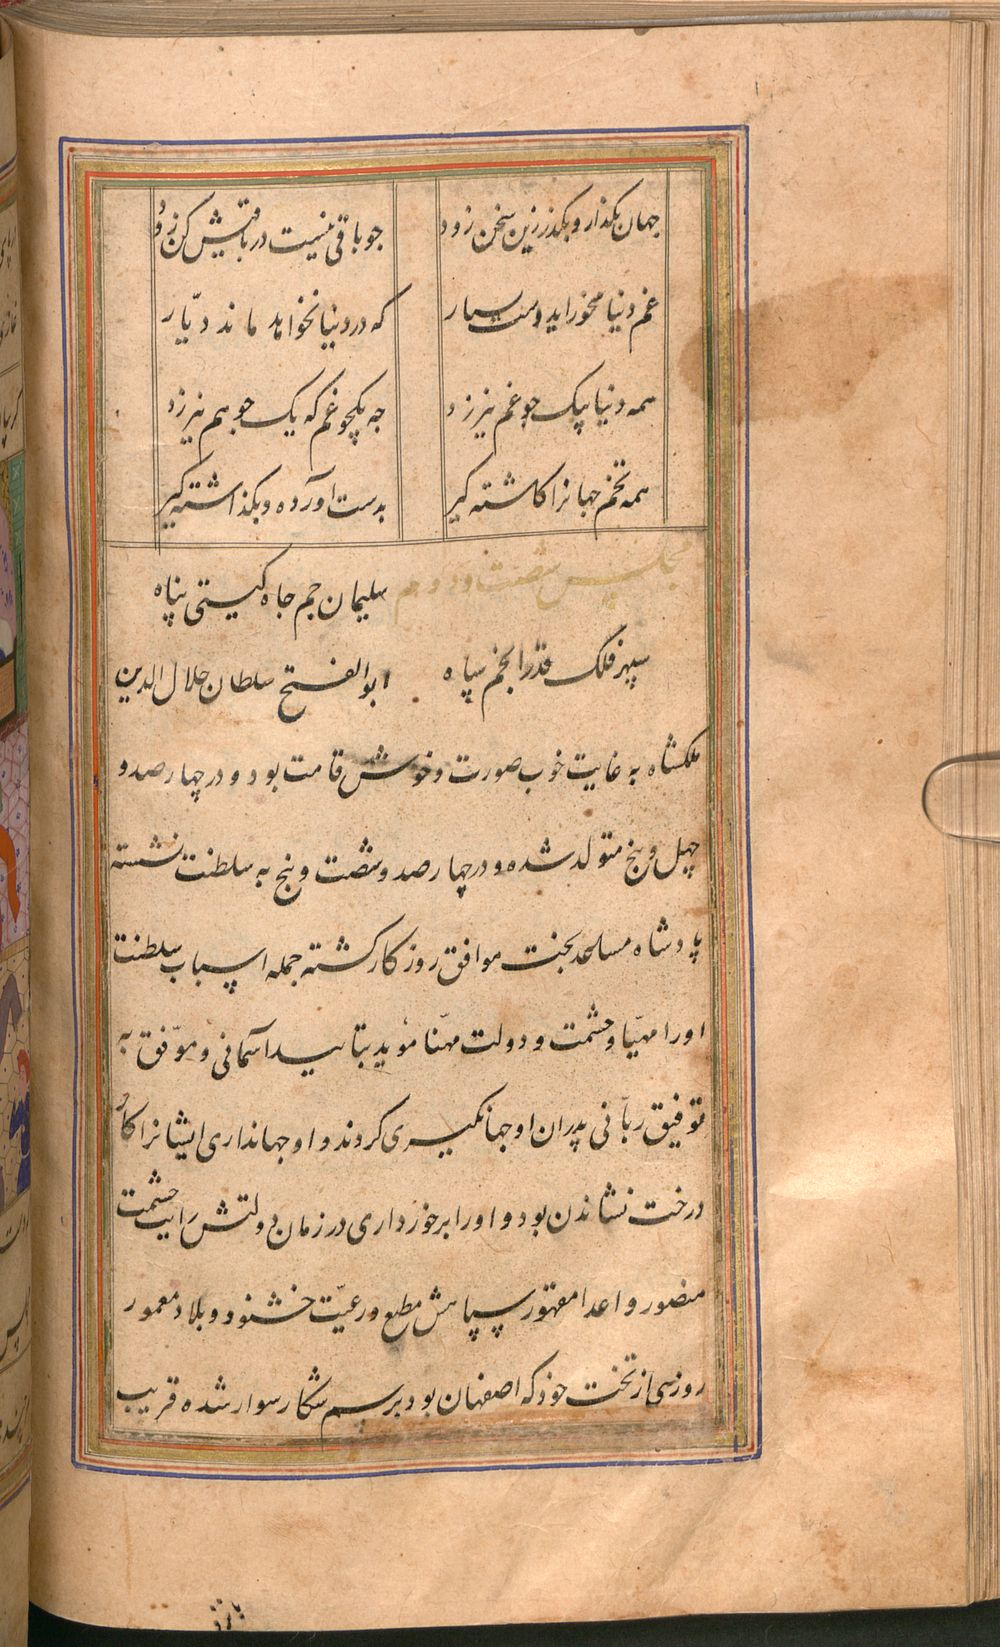 جهان بگذار و بگذر زین سخن زود جو باقی نیست در باقیش کن زود
غم دنیا مخور ایدوست بسیار که در دنیا نخواهد ماند دیّار
همه دنیا بیک جو غم نیرزد چه یکجو غم که یک جو هم نیرزد
همه تخم جهانرا کاشته گیر بدست آورده و بگذاشته گیر
مجلس شصت و دوم سلیمان جم جاه گیتی پناه
سپهر فلک قدر انجم سپاه ابوالفتح سلطان جلال الدین
ملکشاه به غایت خوب صورت و خوش قامت بود و در چهار صد و
چهل و پنج متولد شده و در چهار صد و شصت و پنج به سلطنت نشسته
پادشاه بخت موافق روزکار کشته جمله اسباب سلطنت
او را مهیّا و حشمت و دولت مهنّا مؤید بتایید آسمانی و موفّق به
توفیق ربّانی پدران او جهانکیری کردند و او جهانداری ایشانرا کار
درخت نشاندن بود و او را برخورداری در زمان دولتش رایت حشمت
منصور و اعدا مقهور سپاهش مطیع و رعیّت خشنود و بلاد معمور
روزی از تخت خود که اصفهان بود برسم شکار سوار شده قریب